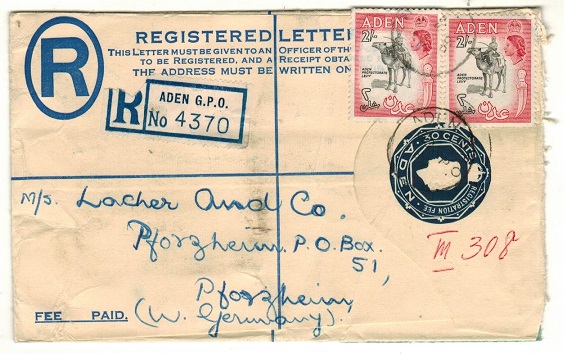 R
REGISTERED LETTE
THIS LETTER MUST BE GIVEN TO AN OFFICER OF THE
TO BE REGISTERED, AND A RECEIPT OBTA
THE ADDRESS MUST BE WRITTEN ON
ADEN
2/-
ADEN
PROTECTORATE
LEVY
عدن
ADEN
2/-
ADEN
PROTECTORATE
LEVY
عدن
R
ADEN G.P.O.
No 4370
ADEN
30 CENTS
ADEN
REGISTRATION FEE
M/s. Lacher And Co.
Pforzheim. P.O. Box.
51,
Pforzheim,
(W. Germany).
III 308
FEE PAID.